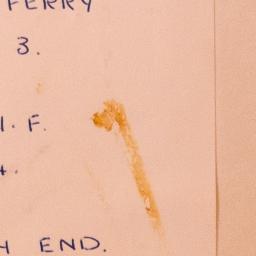 FERRY
3.
. F.
.
END.